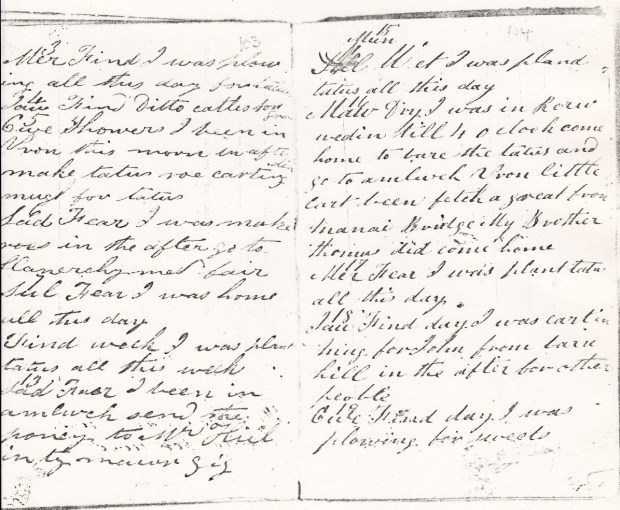 103
3
Mer Find I was plow
ing all this day for tatws
4
Iau Find Ditto cattes for
5
Gwe Showers I been in
Vron this morn in after
make tatus roe carting
muct for tatus
Sad Fear I was make
rows in the after go to
Llanerchymed fair
Sul Fear I was home
all this day
Find week I was plant
tatus all this week
13
Sad Fear I been in
amlwch send
poney to Mr
in ty mawr gig
104
15
Mun
Sul Wet I was pland
tatus all this day
Maw Dry I was in
till 4 o clock come
home to bare the tatus and
go to amlwch Vron little
cart been fetch a great from
manai Bridge My Brother
thomas did come home
17
Mer Fear I was plant tatu
all this day
18
Iau Find day I was cartin
hing for John from
hill in the after for other
peoble
19
Gwe Find day I was
plowing for sweds